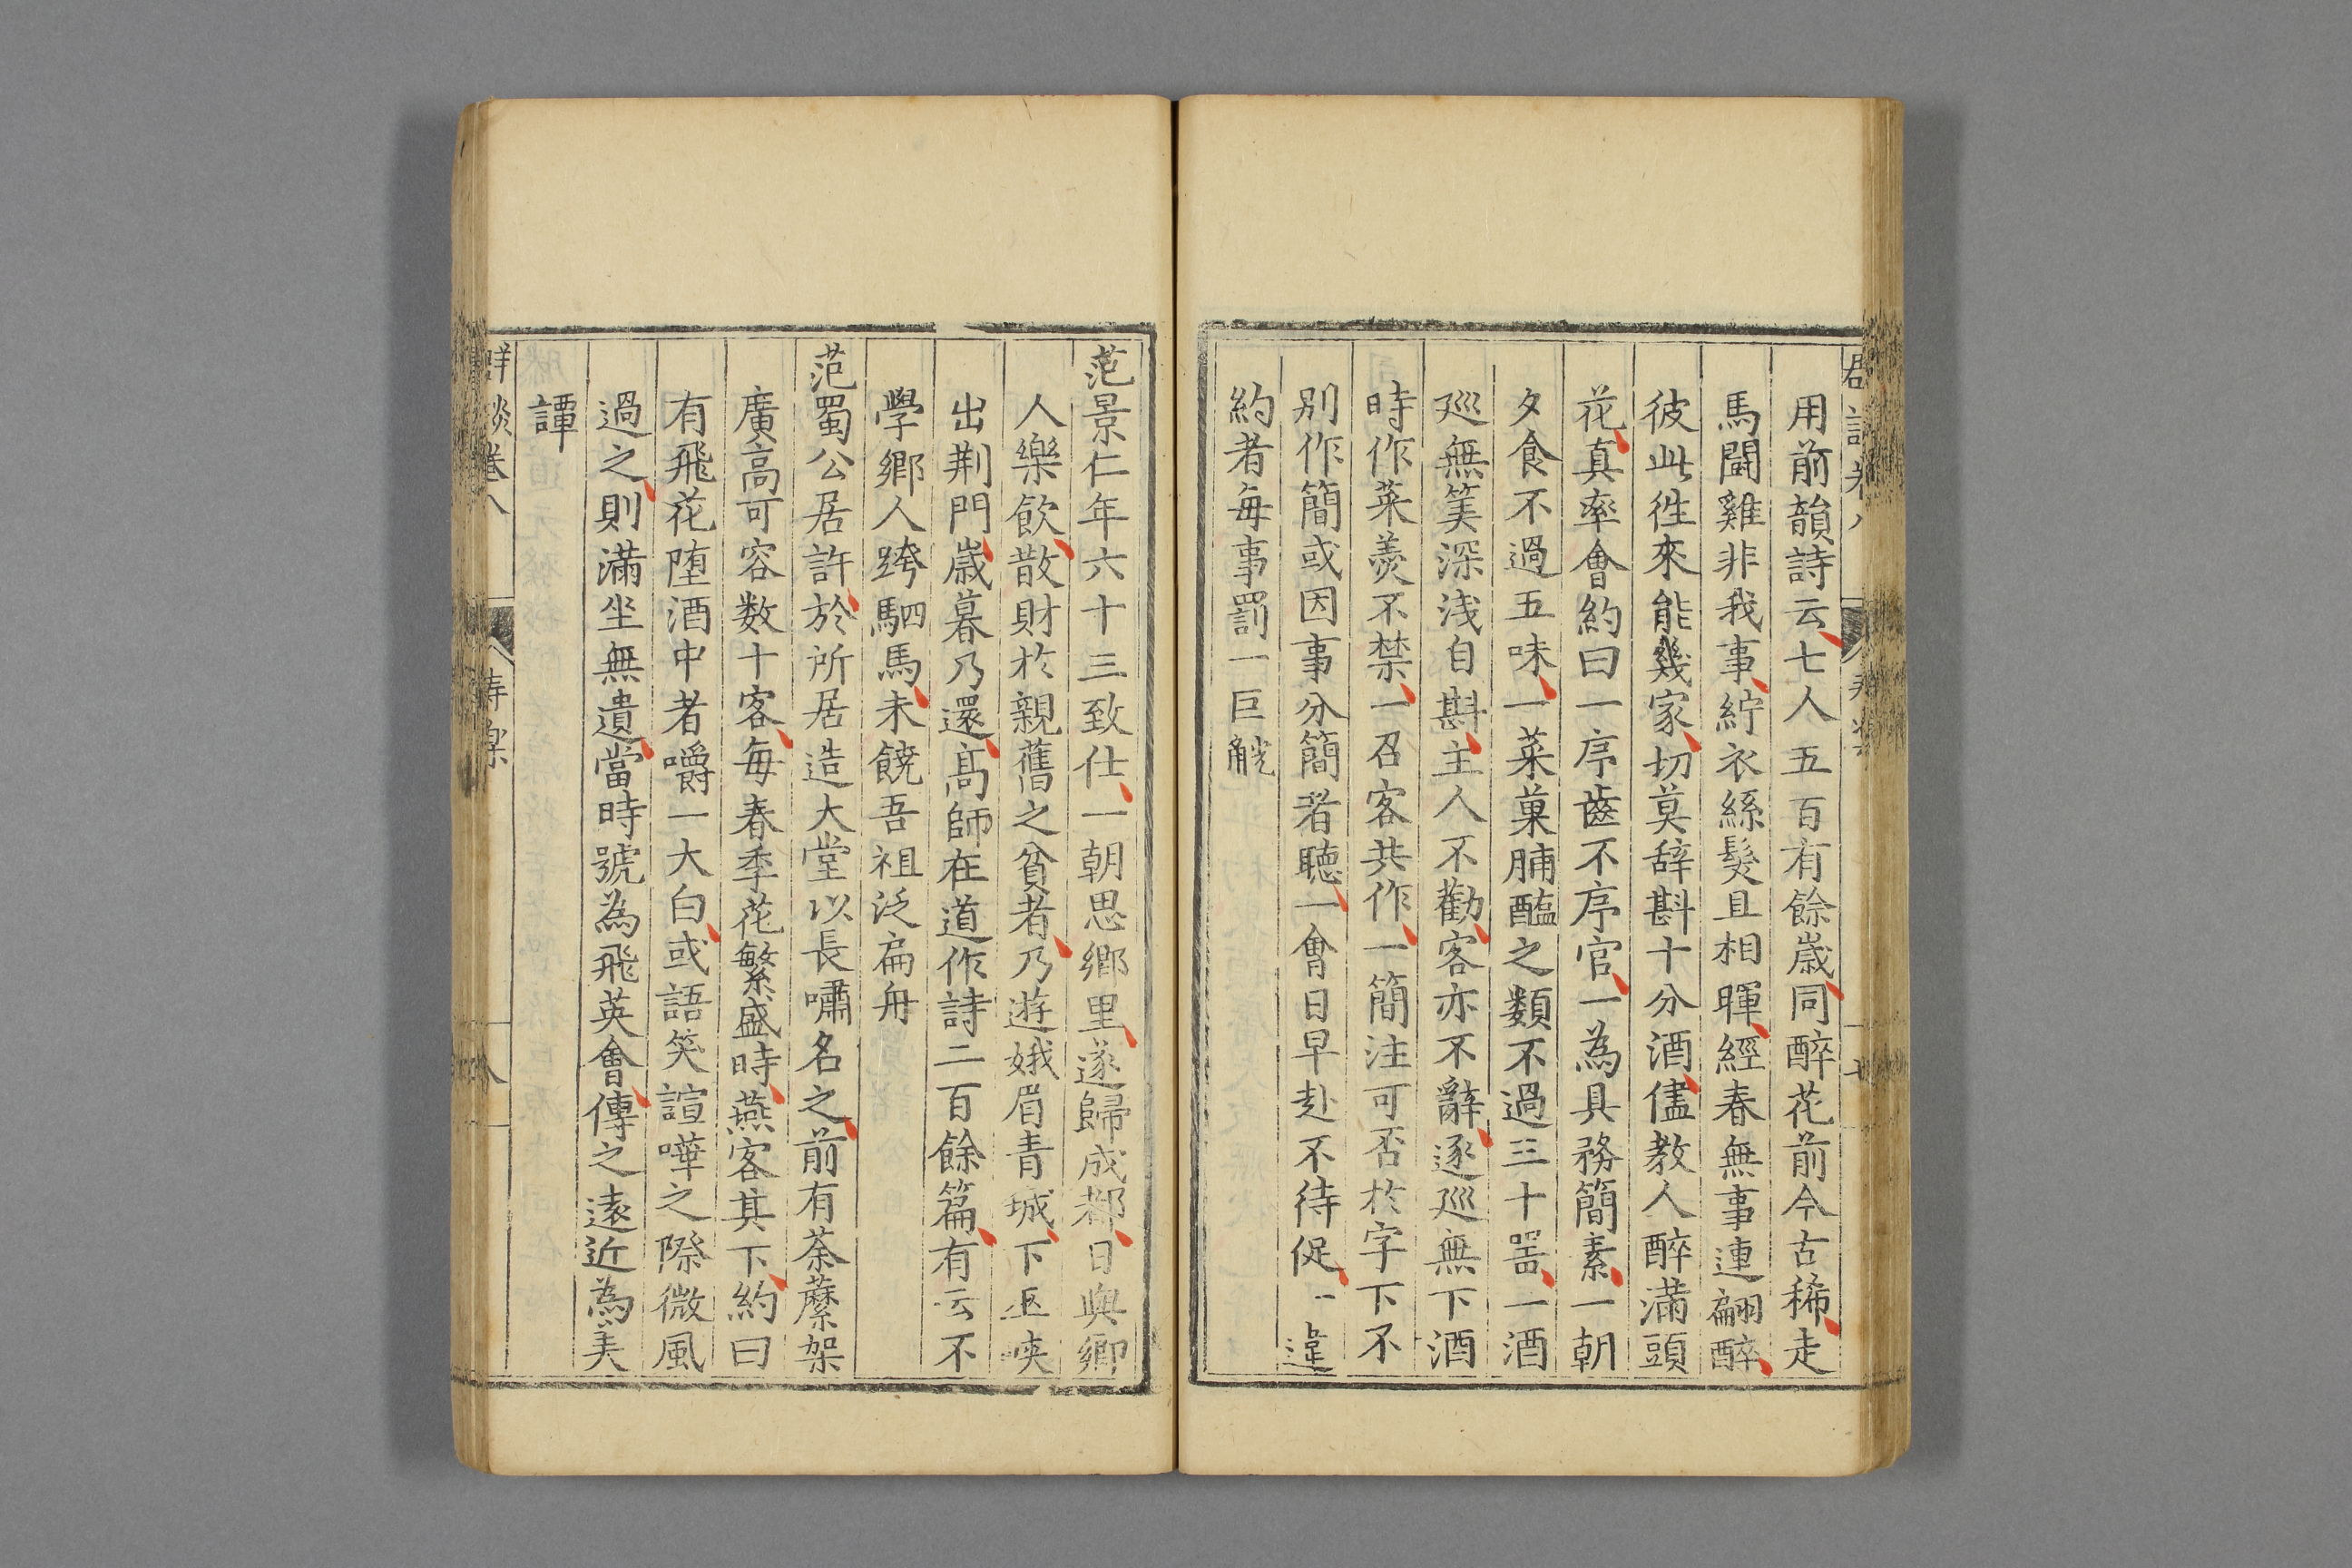 用前韻詩云七人五百有餘歲同醉花前今古稀走
馬鬪雞非我事紵衣絲髮且相暉經春無事連翩醉
彼此徃來能幾家切莫辞斟十分酒儘教人醉滿頭
花真率會約曰一序齒不序官一為具務簡素一朝
夕食不過五味一菜菓脯醢之類不過三十噐一酒
廵無筭深浅自斟主人不勸客亦不辭逐廵無下酒
時作菜羮不禁一召客共作一簡注可否於字下不
別作簡或因事分簡者聴一會日早赴不待促一違
約者每事罰一巨觥
范景仁年六十三致仕一朝思鄉里遂歸成都日與鄉
人樂飲散財於親舊之貧者乃遊娥眉青城下巫峽
出荆門歲暮乃還髙師在道作詩二百餘篇有云不
學鄉人跨駟馬未饒吾祖泛扁舟
范蜀公居許於所居造大堂以長嘯名之前有荼蘼架
廣高可容数十客每春季花繁盛時燕客其下約曰
有飛花墮酒中者嚼一大白或語笑諠嘩之際微風
過之則滿坐無遺當時號為飛英會傳之遠近為美
譚
群談卷八 八